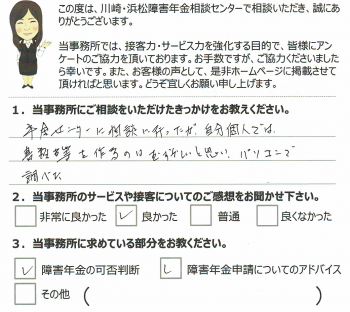 この度は、川崎・浜松障害年金相談センターで相談いただき、誠にあ
りがとうございます。
当事務所では、接客力・サービス力を強化する目的で、皆様にアン
ケートのご協力を頂いております。お手数ですが、ご協力くださいました
ら幸いです。また、お客様の声として、是非ホームページに掲載させて
頂ければと思います。どうぞ宜しくお願い申し上げます。
1．当事務所にご相談をいただけたきっかけをお教えください。
年金センターに相談に行ったが、自分個人では、
書類を作るのはむずかしいと思い、パソコンで
調べた
2．当事務所のサービスや接客についてのご感想をお聞かせ下さい。
非常に良かった 良かった 普通 良くなかった
3．当事務所に求めている部分をお教えください。
障害年金の可否判断 障害年金申請についてのアドバイス
その他 ( )